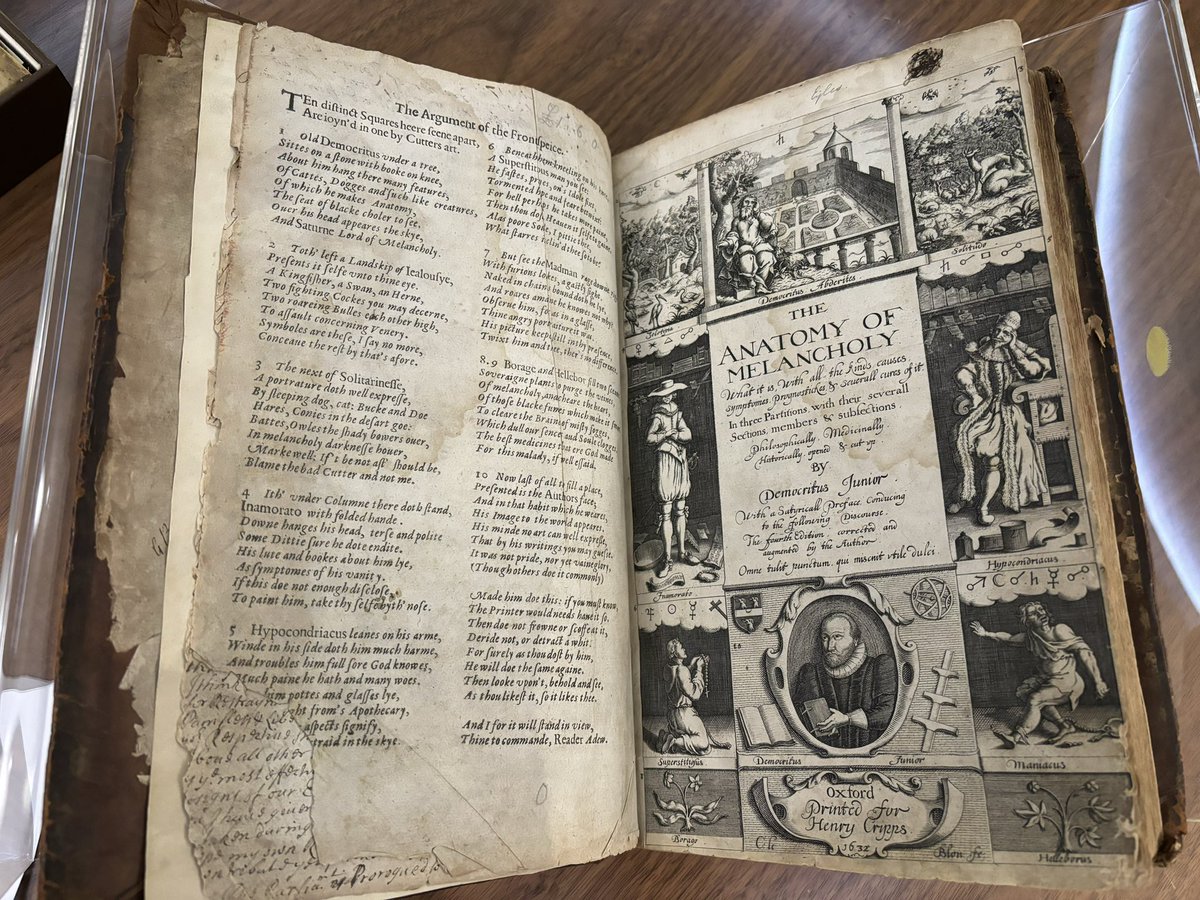 The Argument of the Frontispeice.
TEn distinct Squares heere seene apart,
Are ioyn'd in one by Cutters art.
1 Old Democritus vnder a tree,
Sittes on a stone with booke on knee,
About him hang there many features,
Of Cattes, Dogges and such like creatures,
Of which he makes Anatomy,
The seat of blacke choler to see.
Ouer his head appeares the skye,
And Saturne Lord of Melancholy.
2 Toth' left a Landskip of Iealousye,
Presents it selfe vnto thine eye.
A Kingfisher, a Swan, an Herne,
Two fighting Cockes you may decerne,
Two roaring Bulles each other high,
To assault concerning Venery.
Symboles are these, I say no more,
Conceaue the rest by that's afore.
3 The next of Solitarinesse,
A portrature doth well expresse,
By sleeping dog, cat: Bucke and Doe
Hares, Conies in the desart goe:
Battes, Owles the shady bowers ouer,
In melancholy darknesse houer,
Marke well: If't be not as't should be,
Blame the bad Cutter and not me.
4 Ith' vnder Columne there doth stand,
Inamorato with folded hande.
Downe hanges his head, terse and polite
Some Dittie sure he dote endite.
His lute and bookes about him lye,
As symptomes of his vanity.
If this doe not enough disclose,
To paint him, take thy selfe byth' nose.
5 Hypocondriacus leanes on his arme,
Winde in his side doth him much harme,
And troubles him full sore God knowes,
Much paine he hath and many woes.
pottes and glasses lye,
from's Apothecary,
aspects signify,
in the skye.
6 Beneath them kneeling on his knee,
A Superstitious man you see.
He fastes, prayes, on's Idole fixt,
Tormented hope and feare betwixt:
For hell perhaps he takes more paine,
Then thou dost Heauen it selfe to gaine.
Alas poore Soule, I pittie thee,
What starres incline thee so to be?
7 But see the Madman rage downe right
With furious lookes, a gastly sight.
Naked in chaines bound doth he lye,
And roares amaine he knowes not why?
Obserue him, for as in a glasse,
Thine angry portraturet was.
His picture keepe still in thy presence,
Twixt him and thee, ther's no difference.
8.9 Borage and Hellebor fill two sceanes,
Soveraigne plants to purge the veines
Of melancholy, and cheare the heart,
Of those blacke fumes which make it smart.
To cleare the Braine of misty fogges,
Which dull our sence and Soule clogges.
The best medicines that ere God made
For this malady, if well assaid.
10 Now last of all to fill a place,
Presented is the Authors face,
And in that habit which he weares,
His Image to the world appeares,
His minde no art can well expresse,
That by his writings you may guesse.
It was not pride, nor yet vaineglory,
(Though others doe it commonly)
Made him doe this: if you must know,
The Printer would needs haue it so.
Then doe not frowne or scoffe at it,
Deride not, or detract a whit.
For surely as thou dost by him,
He will doe the same againe.
Then looke vpon't, behold and see,
As thou likest it, so it likes thee.
And I for it will stand in view,
Thine to commande, Reader Adew.
Democritus Abderites
Solitudo
THE
ANATOMY OF
MELANCHOLY
What it is, With all the kinds causes,
symptomes, prognostickes & seuerall cures of it.
In three Partitions, with their severall
Sections, members & subsections.
Philosophically, Medicinally,
Historically, opened & cut vp.
BY
Democritus Junior.
With a Satyricall Preface, Conducing
to the following Discourse.
The fourth Edition, corrected and
augmented by the Author.
Omne tulit punctum, qui miscuit vtile dulci.
Inamorato
Hypocondriacus
Superstitiosus
Democritus Junior
Maniacus
Borago
Oxford
Printed for
Henry Cripps
1632
C. le Blon fe.
Helleborus